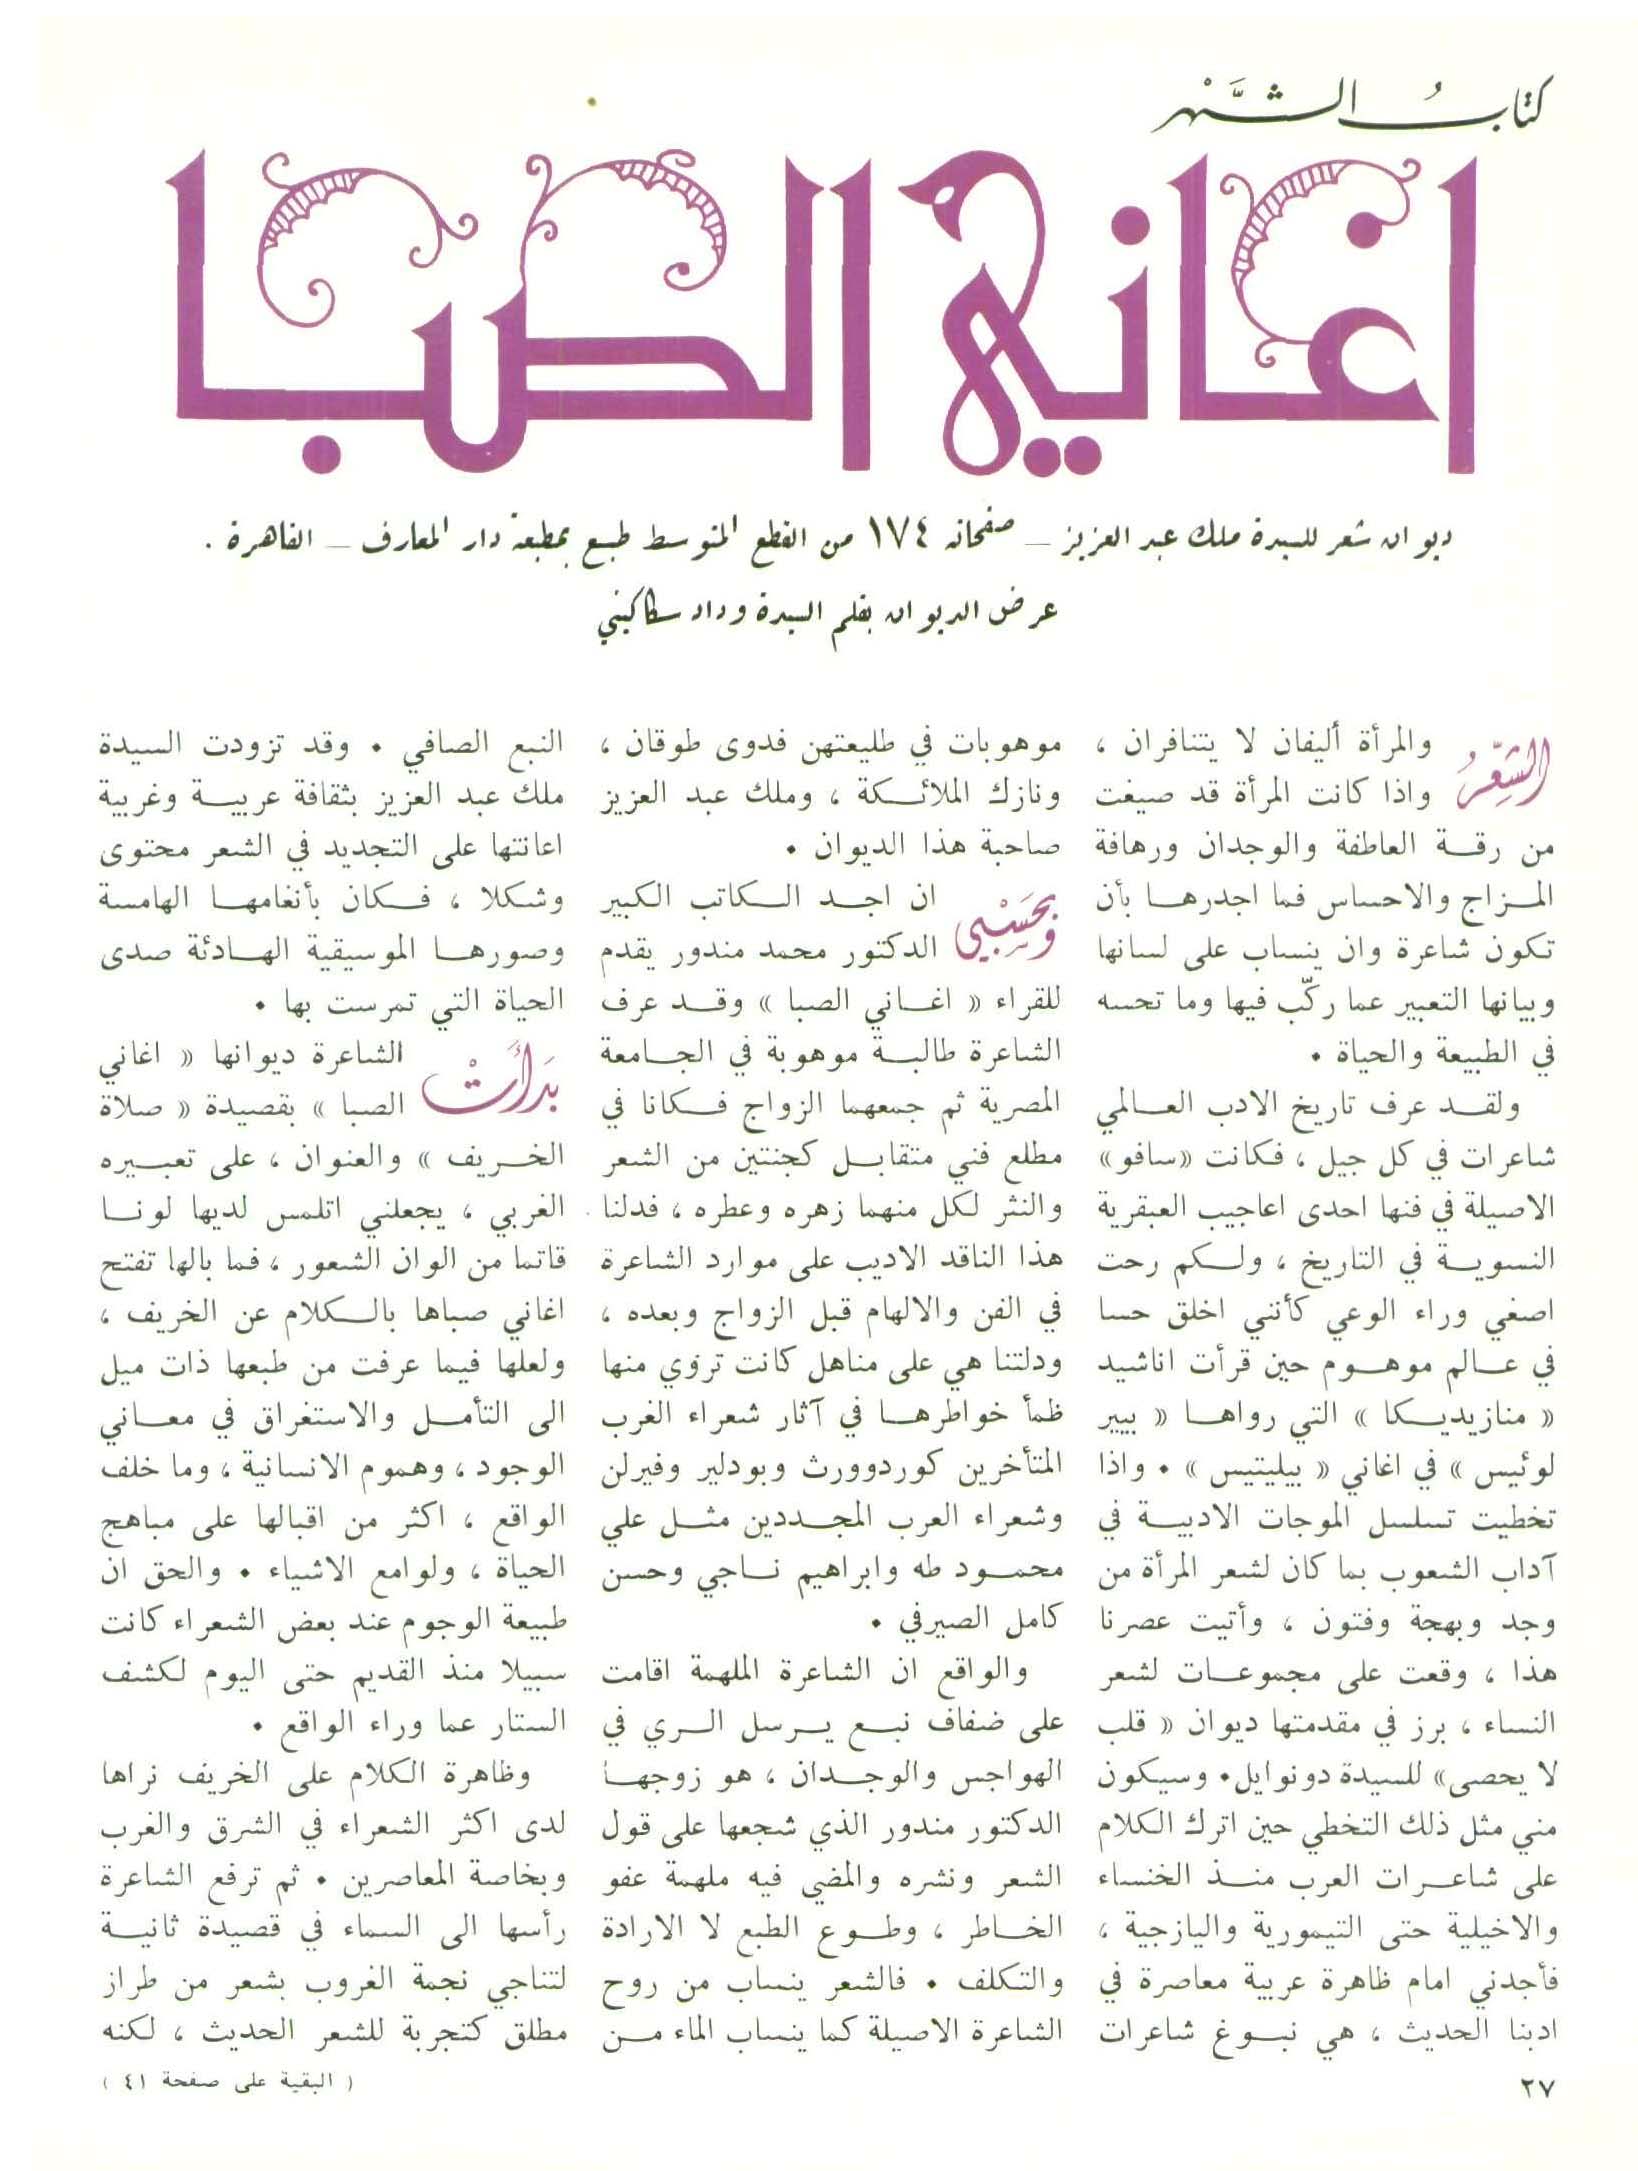 كتابُ الشَّهْر
اغاني الصبا
ديوان شعر للسيدة ملك عبد العزيز – صفحاته ١٧٤ من القطع المتوسط طبع بمطبعة دار المعارف – القاهرة .
عرض الديوان بقلم السيدة وداد سكاكيني
الشِّعرُ والمرأة أليفان لا يتنافران ،
واذا كانت المرأة قد صيغت
من رقة العاطفة والوجدان ورهافة
المزاج والاحساس فما اجدرها بأن
تكون شاعرة وان ينساب على لسانها
وبيانها التعبير عما ركّب فيها وما تحسه
في الطبيعة والحياة .
ولقد عرف تاريخ الادب العالمي
شاعرات في كل جيل ، فكانت «سافو»
الاصيلة في فنها احدى اعاجيب العبقرية
النسوية في التاريخ ، ولكم رحت
اصغي وراء الوعي كأنني اخلق حسا
في عالم موهوم حين قرأت اناشيد
« منازيديكا » التي رواها « بيير
لوئيس » في اغاني « بيليتيس » . واذا
تخطيت تسلسل الموجات الادبية في
آداب الشعوب بما كان لشعر المرأة من
وجد وبهجة وفتون ، وأتيت عصرنا
هذا ، وقعت على مجموعات لشعر
النساء ، برز في مقدمتها ديوان « قلب
لا يحصى» للسيدة دونوايل. وسيكون
مني مثل ذلك التخطي حين اترك الكلام
على شاعرات العرب منذ الخنساء
والاخيلية حتى التيمورية واليازجية ،
فأجدني امام ظاهرة عربية معاصرة في
ادبنا الحديث ، هي نبوغ شاعرات
موهوبات في طليعتهن فدوى طوقان ،
ونازك الملائكة ، وملك عبد العزيز
صاحبة هذا الديوان .
وبحَسْبي ان اجد الكاتب الكبير
الدكتور محمد مندور يقدم
للقراء « اغاني الصبا » وقد عرف
الشاعرة طالبة موهوبة في الجامعة
المصرية ثم جمعهما الزواج فكانا في
مطلع فني متقابل كجنتين من الشعر
والنثر لكل منهما زهره وعطره ، فدلنا
هذا الناقد الاديب على موارد الشاعرة
في الفن والالهام قبل الزواج وبعده ،
ودلتنا هي على مناهل كانت تروي منها
ظمأ خواطرها في آثار شعراء الغرب
المتأخرين كوردوورث وبودلير وفيرلن
وشعراء العرب المجددين مثل علي
محمود طه وابراهيم ناجي وحسن
كامل الصيرفي .
والواقع ان الشاعرة الملهمة اقامت
على ضفاف نبع يرسل الري في
الهواجس والوجدان ، هو زوجها
الدكتور مندور الذي شجعها على قول
الشعر ونشره والمضي فيه ملهمة عفو
الخاطر ، وطوع الطبع لا الارادة
والتكلف . فالشعر ينساب من روح
الشاعرة الاصيلة كما ينساب الماء من
النبع الصافي . وقد تزودت السيدة
ملك عبد العزيز بثقافة عربية وغربية
اعانتها على التجديد في الشعر محتوى
وشكلا ، فكان بأنغامها الهامسة
وصورها الموسيقية الهادئة صدى
الحياة التي تمرست بها .
بَدأَتْ الشاعرة ديوانها « اغاني
الصبا » بقصيدة « صلاة
الخريف » والعنوان ، على تعبيره
الغربي ، يجعلني اتلمس لديها لونا
قاتما من الوان الشعور ، فما بالها تفتح
اغاني صباها بالكلام عن الخريف ،
ولعلها فيما عرفت من طبعها ذات ميل
الى التأمل والاستغراق في معاني
الوجود ، وهموم الانسانية ، وما خلف
الواقع ، اكثر من اقبالها على مباهج
الحياة ، ولوامع الاشياء . والحق ان
طبيعة الوجوم عند بعض الشعراء كانت
سبيلا منذ القديم حتى اليوم لكشف
الستار عما وراء الواقع .
وظاهرة الكلام على الخريف نراها
لدى اكثر الشعراء في الشرق والغرب
وبخاصة المعاصرين . ثم ترفع الشاعرة
رأسها الى السماء في قصيدة ثانية
لتناجي نجمة الغروب بشعر من طراز
مطلق كتجربة للشعر الحديث ، لكنه
( البقية على صفحة ٤١ )
٢٧